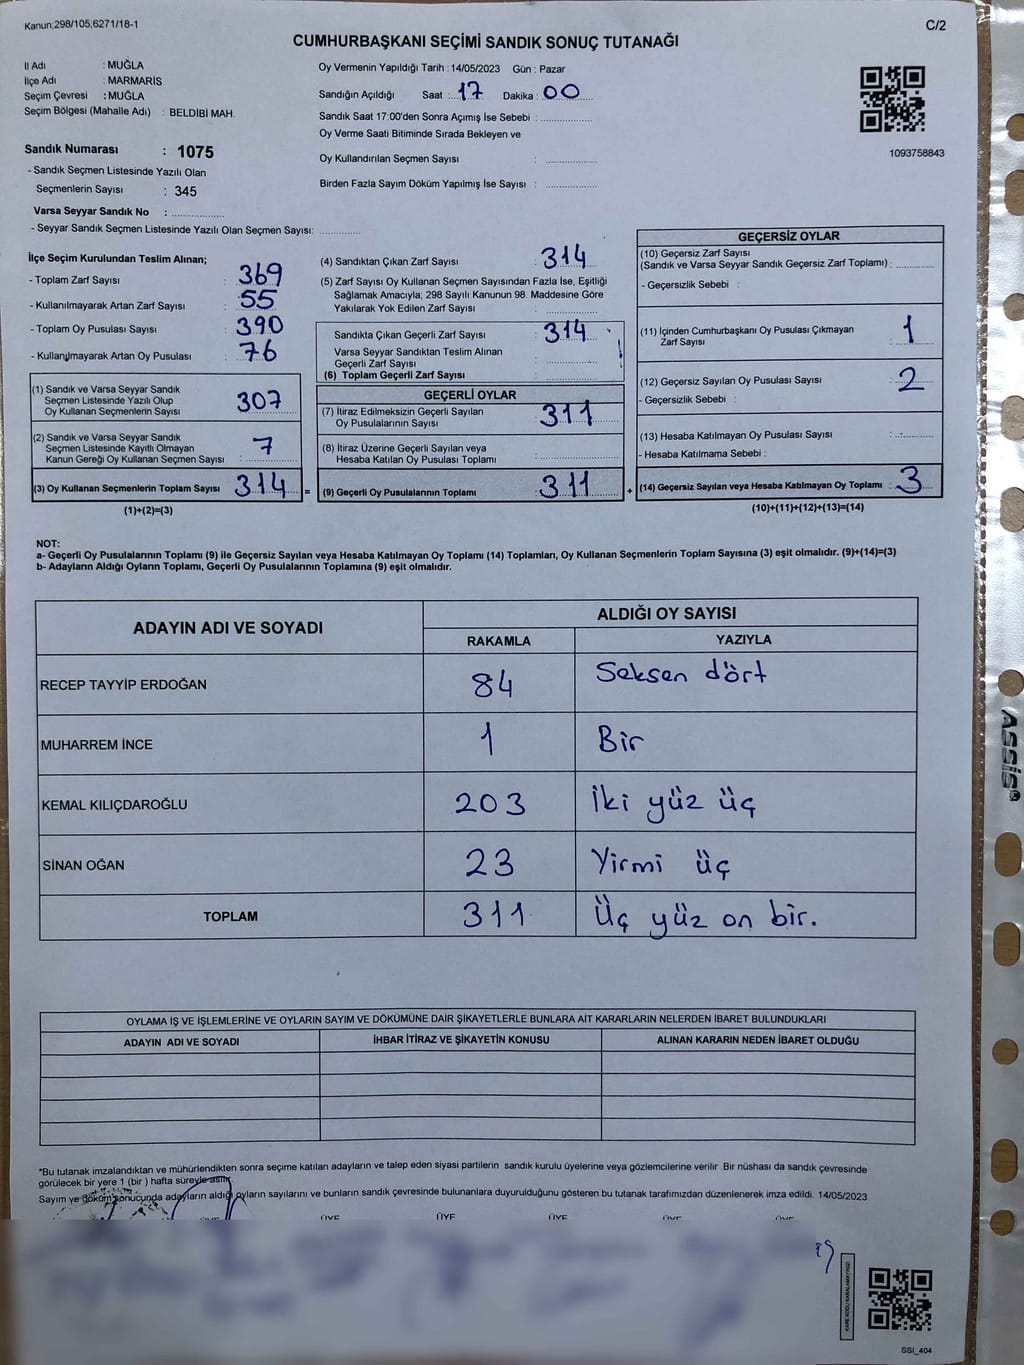 Kanun:298/105,6271/18-1
C/2
CUMHURBAŞKANI SEÇİMİ SANDIK SONUÇ TUTANAĞI
İl Adı : MUĞLA
İlçe Adı : MARMARİS
Seçim Çevresi : MUĞLA
Seçim Bölgesi (Mahalle Adı) : BELDİBİ MAH.
Sandık Numarası : 1075
- Sandık Seçmen Listesinde Yazılı Olan
Seçmenlerin Sayısı : 345
Varsa Seyyar Sandık No :
- Seyyar Sandık Seçmen Listesinde Yazılı Olan Seçmen Sayısı:
Oy Vermenin Yapıldığı Tarih : 14/05/2023 Gün : Pazar
Sandığın Açıldığı Saat : 17 Dakika : 00
Sandık Saat 17:00'den Sonra Açımış İse Sebebi :
Oy Verme Saati Bitiminde Sırada Bekleyen ve
Oy Kullandırılan Seçmen Sayısı :
Birden Fazla Sayım Döküm Yapılmış İse Sayısı :
1093758843
İlçe Seçim Kurulundan Teslim Alınan;
- Toplam Zarf Sayısı : 369
- Kullanılmayarak Artan Zarf Sayısı : 55
- Toplam Oy Pusulası Sayısı : 390
- Kullanılmayarak Artan Oy Pusulası : 76
(1) Sandık ve Varsa Seyyar Sandık
Seçmen Listesinde Yazılı Olup
Oy Kullanan Seçmenlerin Sayısı : 307
(2) Sandık ve Varsa Seyyar Sandık
Seçmen Listesinde Kayıtlı Olmayan
Kanun Gereği Oy Kullanan Seçmen Sayısı : 7
(3) Oy Kullanan Seçmenlerin Toplam Sayısı : 314 =
(1)+(2)=(3)
(4) Sandıktan Çıkan Zarf Sayısı : 314
(5) Zarf Sayısı Oy Kullanan Seçmen Sayısından Fazla İse, Eşitliği
Sağlamak Amacıyla; 298 Sayılı Kanunun 98. Maddesine Göre
Yakılarak Yok Edilen Zarf Sayısı :
Sandıkta Çıkan Geçerli Zarf Sayısı : 314
Varsa Seyyar Sandıktan Teslim Alınan
Geçerli Zarf Sayısı :
(6) Toplam Geçerli Zarf Sayısı :
GEÇERLİ OYLAR
(7) İtiraz Edilmeksizin Geçerli Sayılan
Oy Pusulalarının Sayısı : 311
(8) İtiraz Üzerine Geçerli Sayılan veya
Hesaba Katılan Oy Pusulası Toplamı :
(9) Geçerli Oy Pusulalarının Toplamı : 311 +
GEÇERSİZ OYLAR
(10) Geçersiz Zarf Sayısı
(Sandık ve Varsa Seyyar Sandık Geçersiz Zarf Toplamı) :
- Geçersizlik Sebebi :
(11) İçinden Cumhurbaşkanı Oy Pusulası Çıkmayan
Zarf Sayısı : 1
(12) Geçersiz Sayılan Oy Pusulası Sayısı : 2
- Geçersizlik Sebebi :
(13) Hesaba Katılmayan Oy Pusulası Sayısı :
- Hesaba Katılmama Sebebi :
(14) Geçersiz Sayılan veya Hesaba Katılmayan Oy Toplamı : 3
(10)+(11)+(12)+(13)=(14)
NOT:
a- Geçerli Oy Pusulalarının Toplamı (9) ile Geçersiz Sayılan veya Hesaba Katılmayan Oy Toplamı (14) Toplamları, Oy Kullanan Seçmenlerin Toplam Sayısına (3) eşit olmalıdır. (9)+(14)=(3)
b- Adayların Aldığı Oyların Toplamı, Geçerli Oy Pusulalarının Toplamına (9) eşit olmalıdır.
ADAYIN ADI VE SOYADI
ALDIĞI OY SAYISI
RAKAMLA YAZIYLA
RECEP TAYYİP ERDOĞAN 84 Seksen dört
MUHARREM İNCE 1 Bir
KEMAL KILIÇDAROĞLU 203 İki yüz üç
SİNAN OĞAN 23 Yirmi üç
TOPLAM 311 Üç yüz on bir.
OYLAMA İŞ VE İŞLEMLERİNE VE OYLARIN SAYIM VE DÖKÜMÜNE DAİR ŞİKAYETLERLE BUNLARA AİT KARARLARIN NELERDEN İBARET BULUNDUKLARI
ADAYIN ADI VE SOYADI İHBAR İTİRAZ VE ŞİKAYETİN KONUSU ALINAN KARARIN NEDEN İBARET OLDUĞU
*Bu tutanak imzalandıktan ve mühürlendikten sonra seçime katılan adayların ve talep eden siyasi partilerin sandık kurulu üyelerine veya gözlemcilerine verilir. Bir nüshası da sandık çevresinde
görülecek bir yere 1 (bir ) hafta süreyle asılır.
Sayım ve döküm sonucunda adayların aldığı oyların sayılarını ve bunların sandık çevresinde bulunanlara duyurulduğunu gösteren bu tutanak tarafımızdan düzenlenerek imza edildi. 14/05/2023
ÜYE ÜYE ÜYE ÜYE ÜYE
KARE KODU KARALAMAYINIZ!
SSI_404
Assis